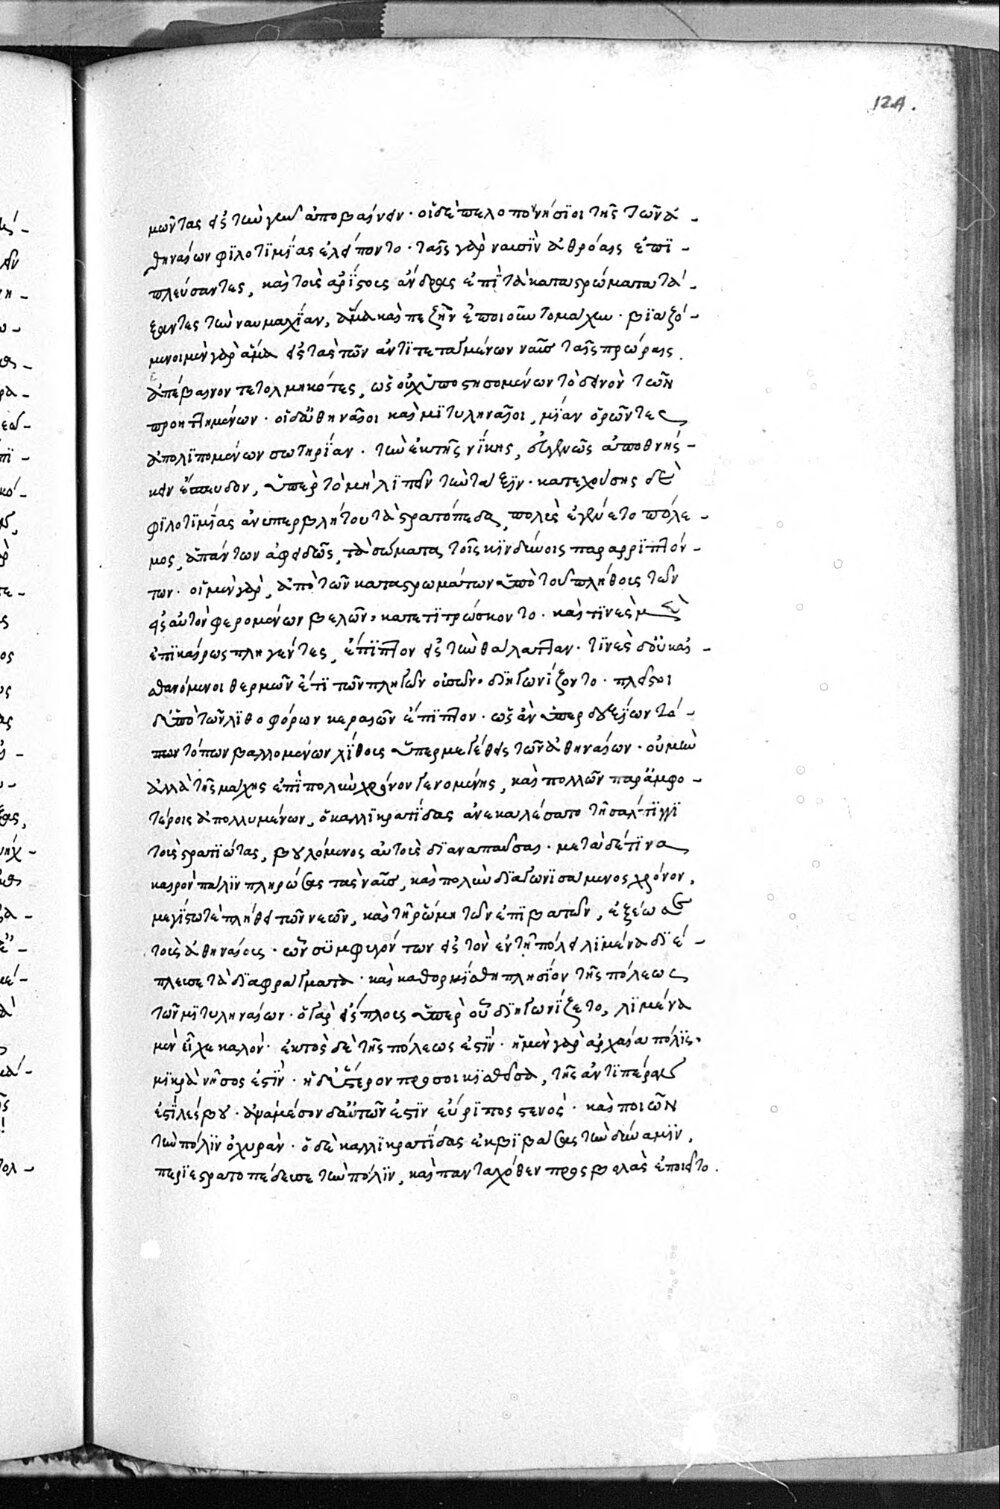 124.
μῶντας εἰς τὴν γῆν ἀποβαίνειν· οἱ δὲ πελοποννήσιοι τῆς τῶν ἀ-
θηναίων φιλοτιμίας ἐλείποντο· ταῖς γὰρ ναυσὶν ἀθρόαις ἐπι-
πλεύσαντες, καὶ τοὺς ἀρίστους ἄνδρας ἐπὶ τὰ καταστρώματα τά-
ξαντες τὴν ναυμαχίαν, ἅμα καὶ πεζὴν ἐποιοῦντο μάχην· βιαζό-
μενοι μὲν γὰρ ἅμα εἰς τὰς τῶν ἀντιτεταγμένων ναῦς ταῖς πρώραις
ἀπέβαινον τετολμηκότες, ὡς οὐχ ὑποστησομένων τὸ δεινὸν τῶν
προηττημένων· οἱ δ' ἀθηναῖοι καὶ μιτυληναῖοι, μίαν ὁρῶντες
ἀπολιπομένων σωτηρίαν· τὴν ἐκ τῆς νίκης, εὐγενῶς ἀποθνήσ-
κειν ἔσπευδον, ὑπὲρ τὸ μὴ λιπεῖν τὴν τάξιν· κατεχούσης δὲ
φιλοτιμίας ἀνυπερβλήτου τὰ στρατόπεδα, πολὺς ἐγένετο πόλε-
μος, ἁπάντων ἀφειδῶς, τὰ σώματα τοῖς κινδύνοις παραρριπτόν-
των· οἱ μὲν γὰρ, ἀπὸ τῶν καταστρωμάτων ὑπὸ τοῦ πλήθους τῶν
εἰς αὐτὸν φερομένων βελῶν, κατετιτρώσκοντο· καὶ τινὲς μὲν
ἐπικαίρως πληγέντες, ἔπιπτον εἰς τὴν θάλατταν· τινὲς δ' οὐκ αἰ-
σθανόμενοι θερμῶν ἔτι τῶν πληγῶν οὐσῶν, διηγωνίζοντο· πλεῖστοι
δ' ὑπὸ τῶν λιθοφόρων κεραιῶν ἔπιπτον· ὡς ἂν ὑπερδεξίων τό-
πων τόπων βαλλομένων λίθους ὑπερμεγέθεις τῶν ἀθηναίων· οὐ μὴν
ἀλλὰ τῆς μάχης ἐπὶ πολὺν χρόνον γενομένης, καὶ πολλῶν παρ' ἀμφο-
τέροις ἀπολλυμένων, ὁ καλλικρατίδας ἀνεκαλέσατο τῇ σάλπιγγι
τοὺς στρατιώτας, βουλόμενος αὐτοὺς διαναπαῦσαι· μετὰ δέ τινα
καιρὸν πάλιν πληρώσας τὰς ναῦς, καὶ πολὺν διαγωνισάμενος χρόνον,
μεγίστῳ τε πλήθει τῶν νεῶν, καὶ τῇ ῥώμῃ τῶν ἐπιβατῶν, ἐξέωσε
τοὺς ἀθηναίους· ὧν συμφυγόντων εἰς τὸν ἐν τῇ πόλει λιμένα διέ-
πλευσε τὰ διαφράγματα· καὶ καθορμίσθη πλησίον τῆς πόλεως
τῶν μιτυληναίων· ὁ γὰρ εἴσπλους ὑπὲρ οὗ διηγωνίζετο, λιμένα
μὲν εἶχε καλὸν· ἐκτὸς δὲ τῆς πόλεως ἐστίν· ἡ μὲν γὰρ ἀρχαία πόλις,
μικρὰ νῆσος ἐστίν· ἡ δ' ὕστερον προσοικισθεῖσα, τῆς ἀντιπέρας
ἐστὶ λέσβου· ἀναμέσον δ' αὐτῶν ἐστὶν εὔριπος στενός· καὶ ποιῶν
τὴν πόλιν ὀχυράν· ὁ δὲ καλλικρατίδας ἐκβιβάσας τὴν δύναμιν,
περιεστρατοπέδευσε τὴν πόλιν, καὶ πανταχόθεν προσβολὰς ἐποιεῖτο.